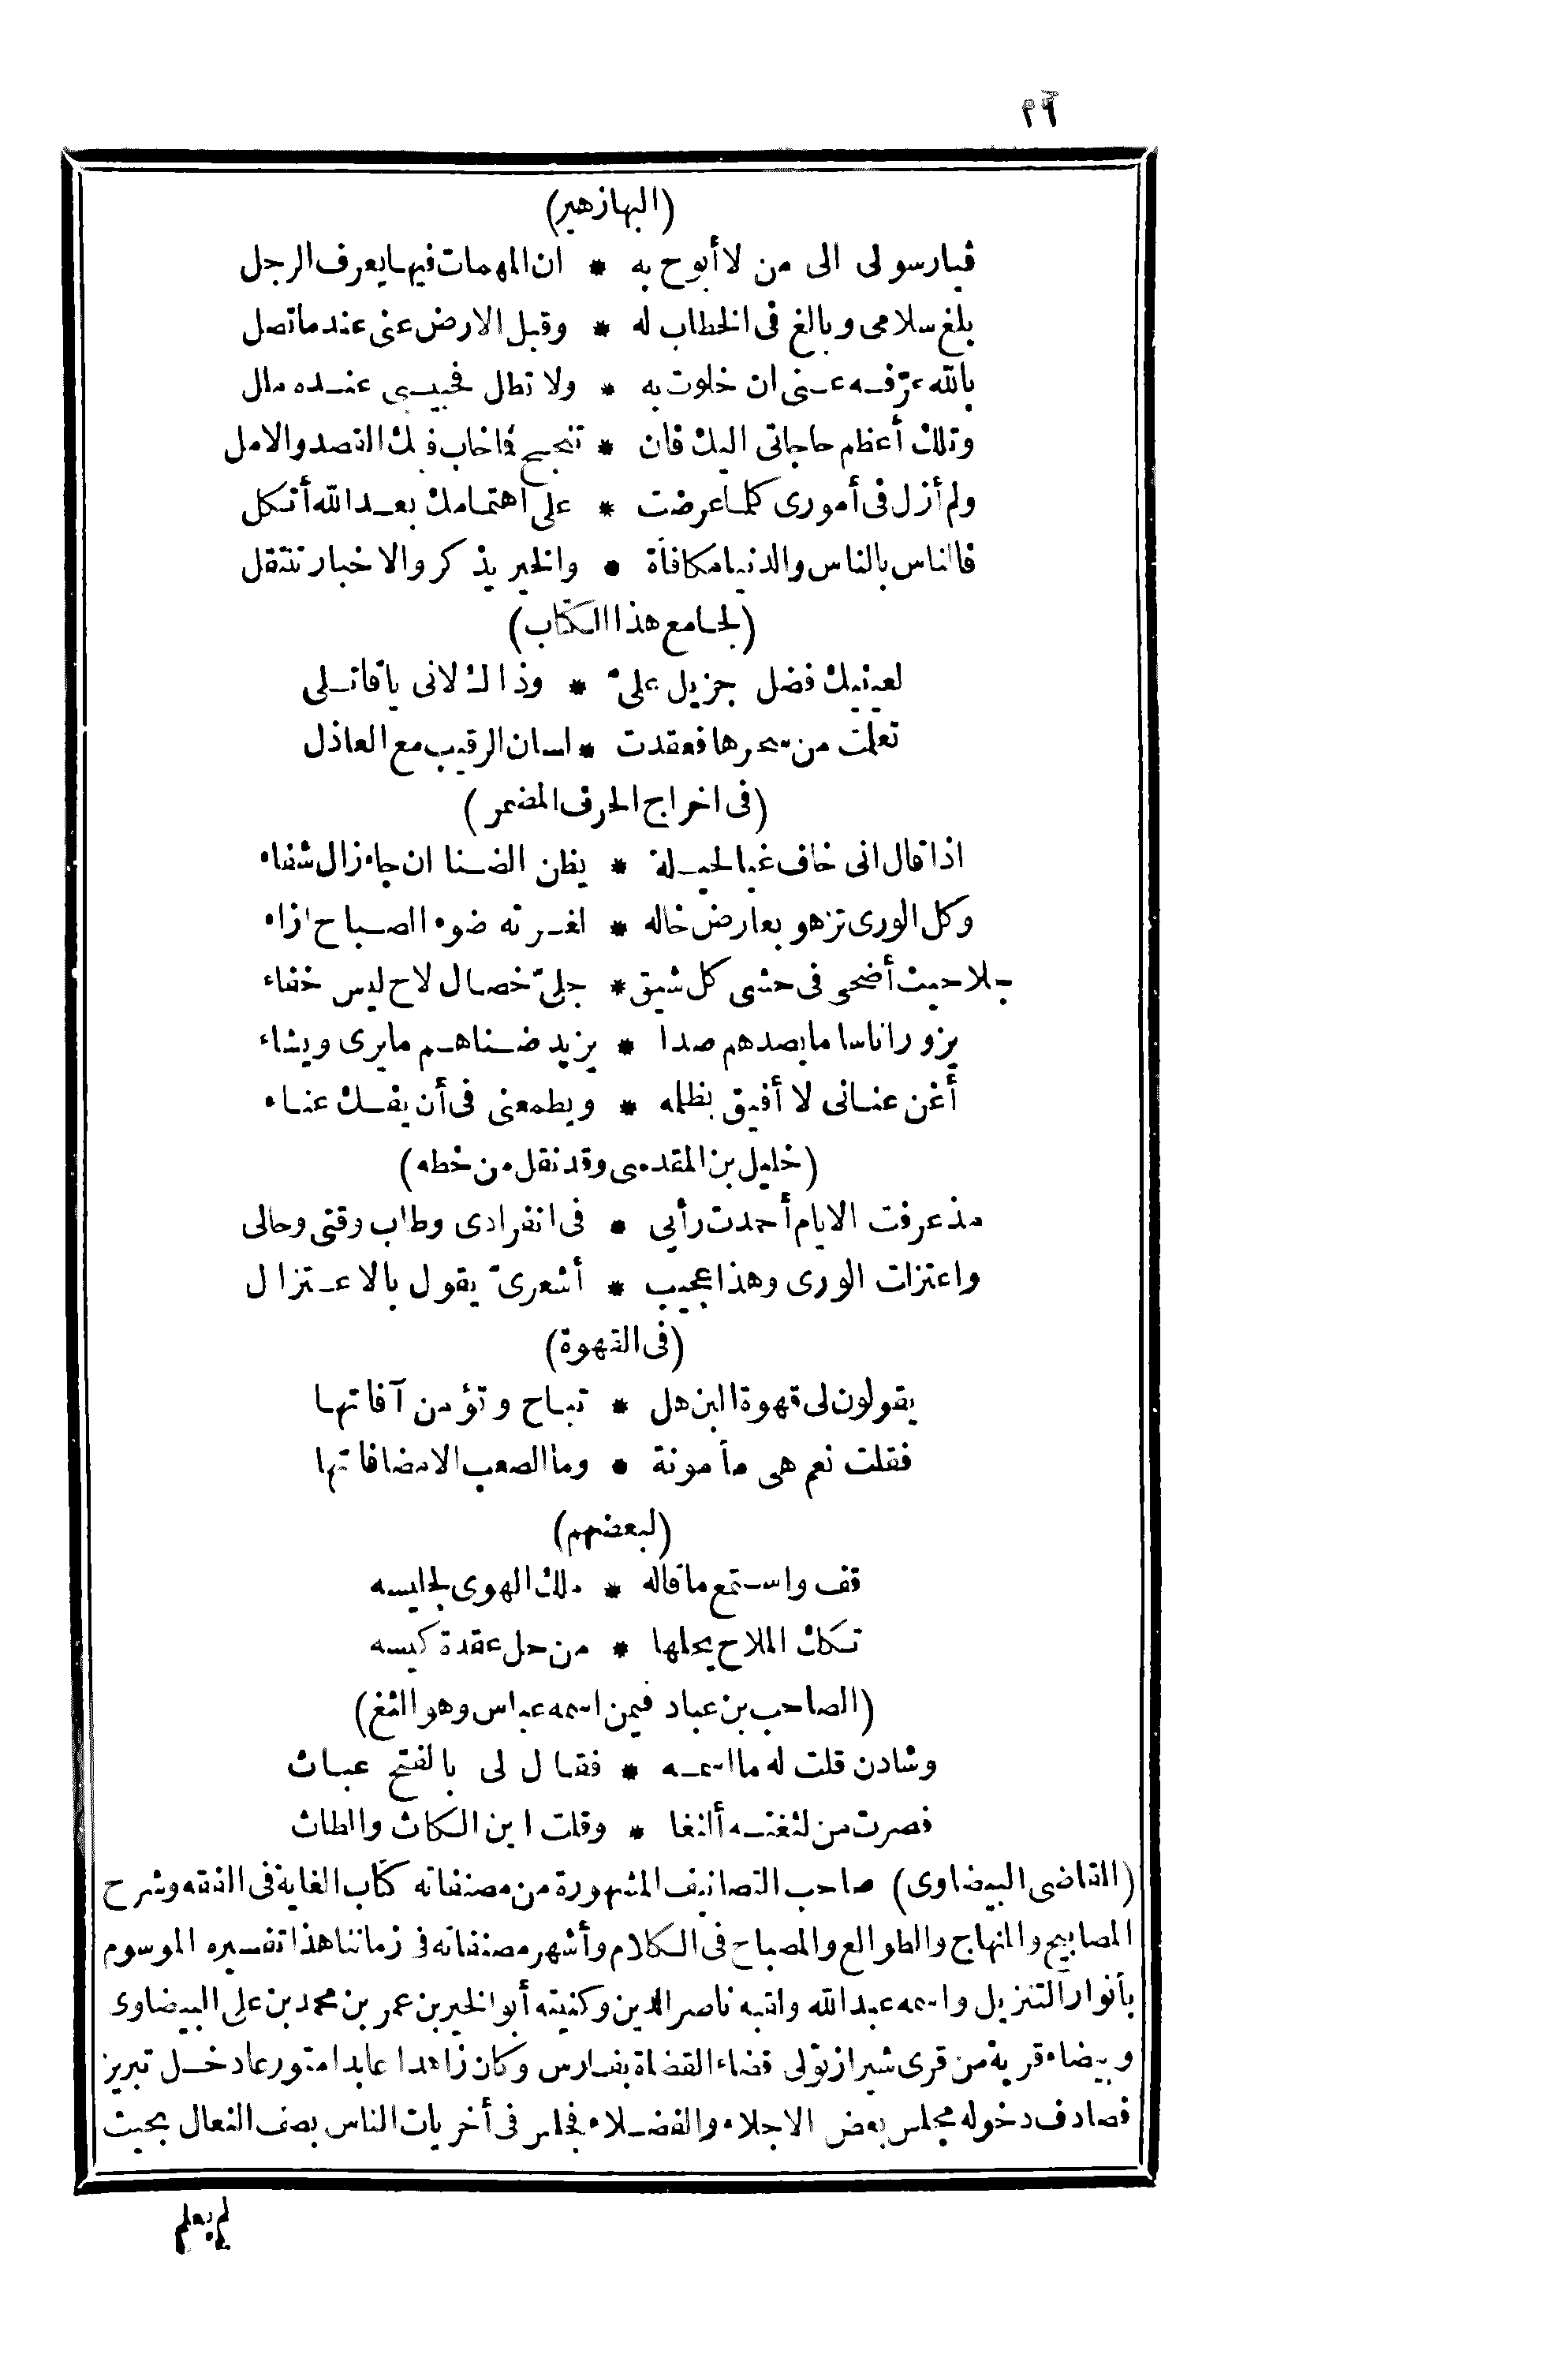 ٢٦
(البهازهير)
فيارسولى الى من لاأبوح به * ان المهمات فيها يعرف الرجل
بلغ سلامى وبالغ فى الخطاب له * وقبل الارض عنى عند ما تصل
بالله عرّفه عنى ان خلوت به * ولا تطل فحبيبى عنده ملل
وتلك أعظم حاجاتى اليك فان * تنجح فما خاب فيك القصد والامل
ولم أزل فى أمورى كلما عرضت * على اهتمامك بعد الله أتكل
فالناس بالناس والدنيا مكافأة * والخير يذكر والاخبار تنتقل
(لجامع هذا الكتاب)
لعينيك فضل جزيل علىّ * وذاك لانى ياقاتلى
تعلمت من سحرها فعقدت * لسان الرقيب مع العاذل
(فى اخراج الحرف المضمر)
اذا قال انى خاف غيا لحيلة * يظن الضنا ان جاء زال شفاء
وكل الورى تزهو بعارض خاله * لغرته ضوء الصباح ازاء
جلا حيث أضحى فى حشى كل شيق * جلىّ خصال لاح ليس خفاء
يزور اناسا ما يصدهم صدا * يزيد ضناهم ما يرى ويشاء
أغن عنانى لا أفيق بظلمه * ويطمعنى فى أن يفك عناء
(خليل بن المقدسى وقد نقل من خطه)
مذ عرفت الايام أحمدت رأيى * فى انفرادى وطاب وقتى وحالى
واعتزلت الورى وهذا عجيب * أشعرىّ يقول بالاعتزال
(فى القهوة)
يقولون لى قهوة البن هل * تباح وتؤمن آفاتها
فقلت نعم هى مأمونة * وما الصعب الا مضافاتها
(لبعضهم)
قف واستمع ما قاله * ملك الهوى لجليسه
تكك الملاح يحلها * من حل عقدة كيسه
(الصاحب بن عباد فيمن اسمه عباس وهو ألثغ)
وشادن قلت له ما اسمه * فقال لى بالفتح عباث
فصرت من لثغته ألثغا * وقلت اين الكاث والطاث
(القاضى البيضاوى) صاحب التصانيف المشهورة من مصنفاته كتاب الغاية فى الفقه وشرح
المصابيح والمنهاج والطوالع والمصباح فى الكلام وأشهر مصنفاته فى زماننا هذا تفسيره الموسوم
بأنوار التنزيل واسمه عبد الله ولقبه ناصر الدين وكنيته أبو الخير بن عمر بن محمد بن على البيضاوى
وبيضاء قرية من قرى شيراز تولى قضاء القضاة بفارس وكان زاهدا عابدا متورعا دخل تبريز
فصادف دخوله مجلس بعض الاجلاء والفضلاء فجلس فى أخريات الناس بصف النعال بحيث
لم يعلم